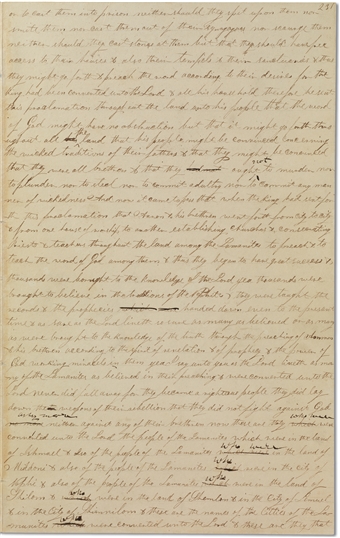 231
or to cast them into prison neither should they spit upon them nor
smite them nor cast them out of their synagogues nor scourge them
neither should they cast stones at them but that they should have free
access to their houses & also their temples & their sanctuaries & thus
they might go forth & preach the word according to their desires for the
king had been converted unto the Lord & all his household therefore he sent
his proclamation throughout the land unto his people that the word
of God might have no obstruction but that it might go forth through
out all the land that his people might be convinced concerning
the wicked traditions of their fathers & that they might be convinced
that they were all brethren & that they ought not to murder nor
to plunder nor to steal nor to commit adultery nor to commit any man
ner of wickedness And now it came to pass that when the king had sent forth
this proclamation that Aaron & his brethren went forth from city to city
& from one house of worship to another establishing churches & consecrating
Priests & teachers throughout the land among the Lamanites to preach & to
teach the word of God among them & thus they began to have great success &
thousands were brought to the knowledge of the Lord yea thousands were
brought to believe in the traditions of the Nephites & they were taught the
records & the prophecies handed down even to the present
time & as sure as the Lord liveth so sure as many as believed or as many
as were brought to the knowledge of the truth through the preaching of Ammon
& his brethren according to the spirit of revelation & of prophecy & the power of
God working miracles in them yea I say unto you as the Lord liveth as ma
ny of the Lamanites as believed in their preaching & were converted unto the
Lord never did fall away for they became a righteous people they did lay
down the weapons of their rebellion that they did not fight against God
no more neither against any of their brethren now these are they who were
converted unto the Lord the people of the Lamanites which were in the land
of Ishmael & also of the people of the Lamanites who were in the land of
Middoni & also of the people of the Lamanites who were in the city of
Nephi & also of the people of the Lamanites who were in the land of
Shilom & who were in the land of Shemlon & in the City of Lemuel
& in the City of Shimnilom & these are the names of the Cities of the La
manites who were converted unto the Lord & these are they that